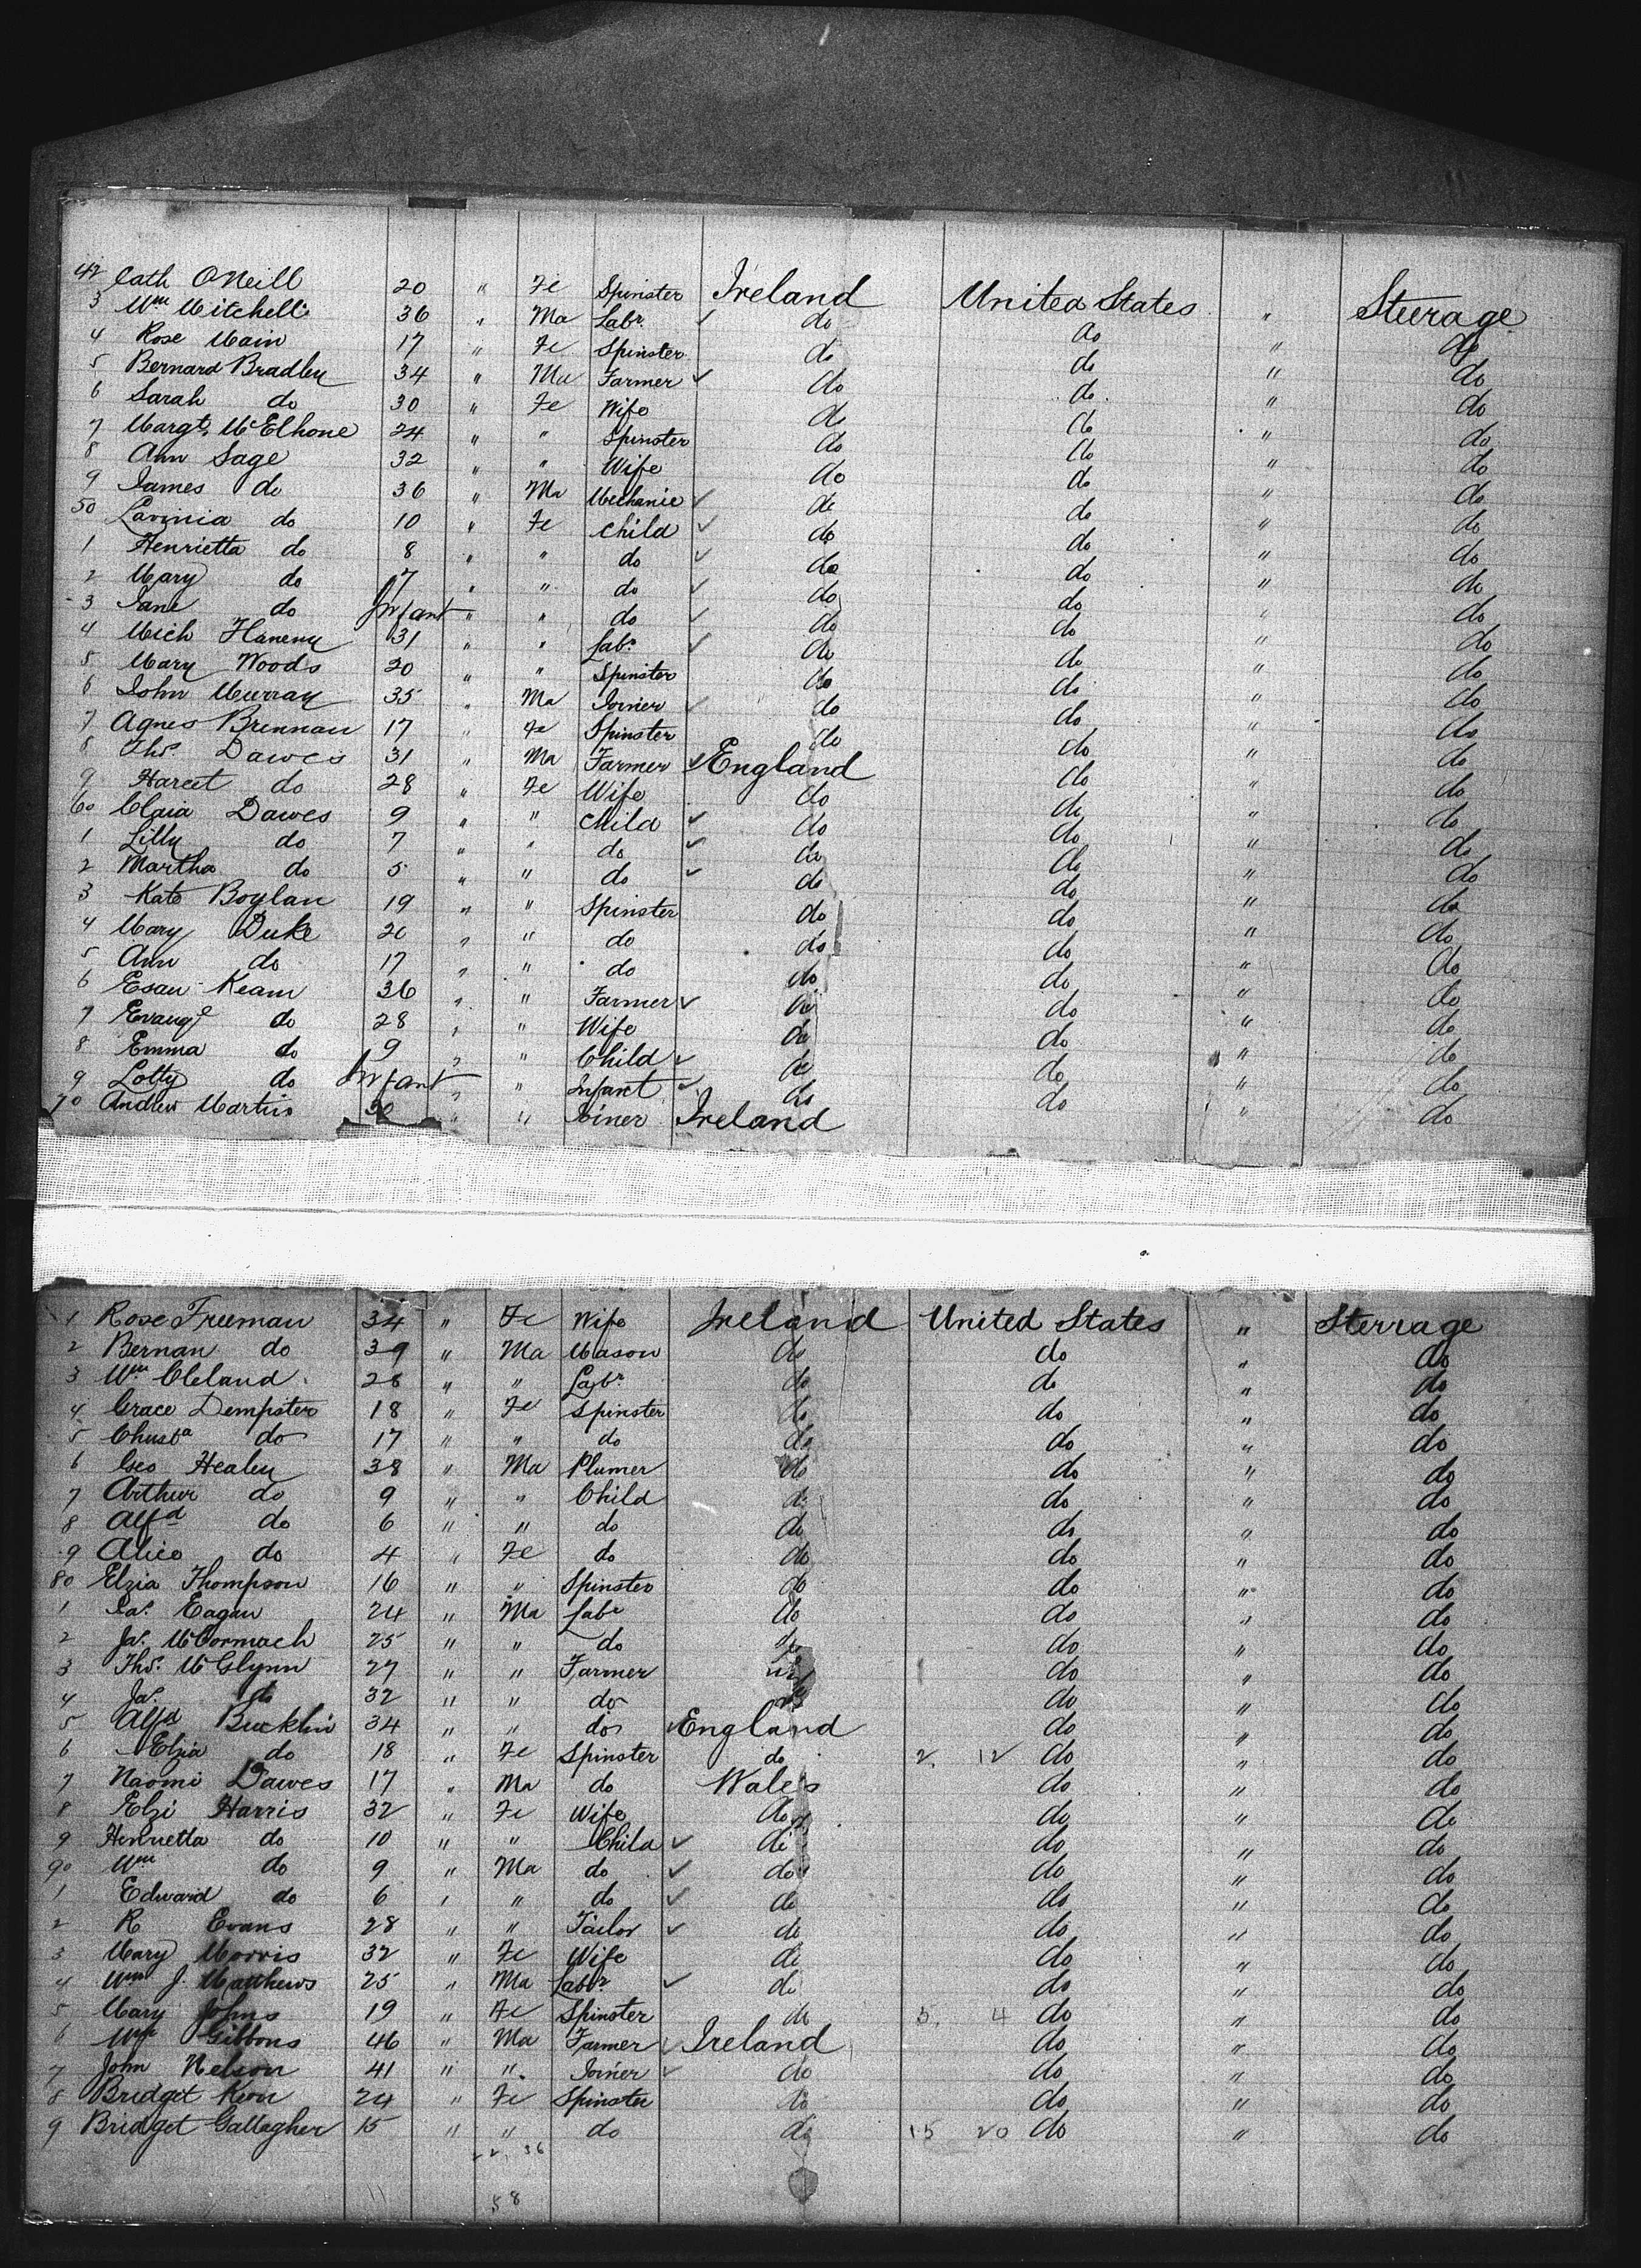 42 Cath ONeill 20 " Fe Spinster Ireland United States " Steerage
3 Wm Mitchell 36 " Ma Labr ✓ do do " do
4 Rose Main 17 " Fe Spinster do do " do
5 Bernard Bradley 34 " Ma Farmer ✓ do do " do
6 Sarah do 30 " Fe Wife do do " do
7 Margt McElhone 24 " " Spinster do do " do
8 Ann Sage 32 " " Wife do do " do
9 James do 36 " Ma Mechanic ✓ do do " do
50 Lavinia do 10 " Fe Child ✓ do do " do
1 Henrietta do 8 " " do ✓ do do " do
2 Mary do 7 " " do ✓ do do " do
3 Jane do Infant " " do ✓ do do " do
4 Mich Haneny 31 " " Labr ✓ do do " do
5 Mary Woods 20 " " Spinster do do " do
6 John Murray 35 " Ma Joiner ✓ do do " do
7 Agnes Brennan 17 " Fe Spinster do do " do
8 Thos. Dawes 31 " Ma Farmer ✓ England do " do
9 Hareet do 28 " Fe Wife do do " do
60 Claia Dawes 9 " " Child ✓ do do " do
1 Lilly do 7 " " do ✓ do do " do
2 Martha do 5 " " do ✓ do do " do
3 Kate Boylan 19 " " Spinster do do " do
4 Mary Duke 20 " " do do do " do
5 Ann do 17 " " do do do " do
6 Esau Keam 36 " " Farmer ✓ do do " do
7 Evange do 28 " " Wife do do " do
8 Emma do 9 " " Child ✓ do do " do
9 Lotty do Infant " " Infant ✓ do do " do
70 Andrew Martin 30 " " Joiner Ireland do " do
1 Rose Freeman 34 " Fe Wife Ireland United States " Sterrage
2 Bernan do 39 " Ma Mason do do " do
3 Wm Cleland 28 " " Labr do do " do
4 Grace Dempster 18 " Fe Spinster do do " do
5 Chusta do 17 " " do do do " do
6 Geo Healey 38 " Ma Plumer do do " do
7 Arthur do 9 " " Child do do " do
8 Alfd do 6 " " do do do " do
9 Alice do 4 " Fe do do do " do
80 Elzia Thompson 16 " " Spinster do do " do
1 Jas. Eagan 24 " Ma Labr do do " do
2 Jas. McCormach 25 " " do do do " do
3 Thos. McGlynn 27 " " Farmer do do " do
4 Jas. do 32 " " do do do " do
5 Alfd Bucklin 34 " " do England do " do
6 Elzia do 18 " Fe Spinster do 2 12 do " do
7 Naomi Dawes 17 " Ma do Wales do " do
8 Elzi Harris 32 " Fe Wife do do " do
9 Henrietta do 10 " " Child ✓ do do " do
90 Wm do 9 " Ma do ✓ do do " do
1 Edward do 6 " " do ✓ do do " do
2 R Evans 28 " " Tailor ✓ do do " do
3 Mary Morris 32 " Fe Wife do do " do
4 Wm J. Matthews 25 " Ma Labr ✓ do do " do
5 Mary Johns 19 " Fe Spinster do 3. 4 do " do
6 Wm Gibbons 46 " Ma Farmer Ireland do " do
7 John Nelson 41 " " Joiner ✓ do do " do
8 Bridget Keon 24 " Fe Spinster do do " do
9 Bridget Gallagher 15 " " do do 15 20 do " do
22. 36
58